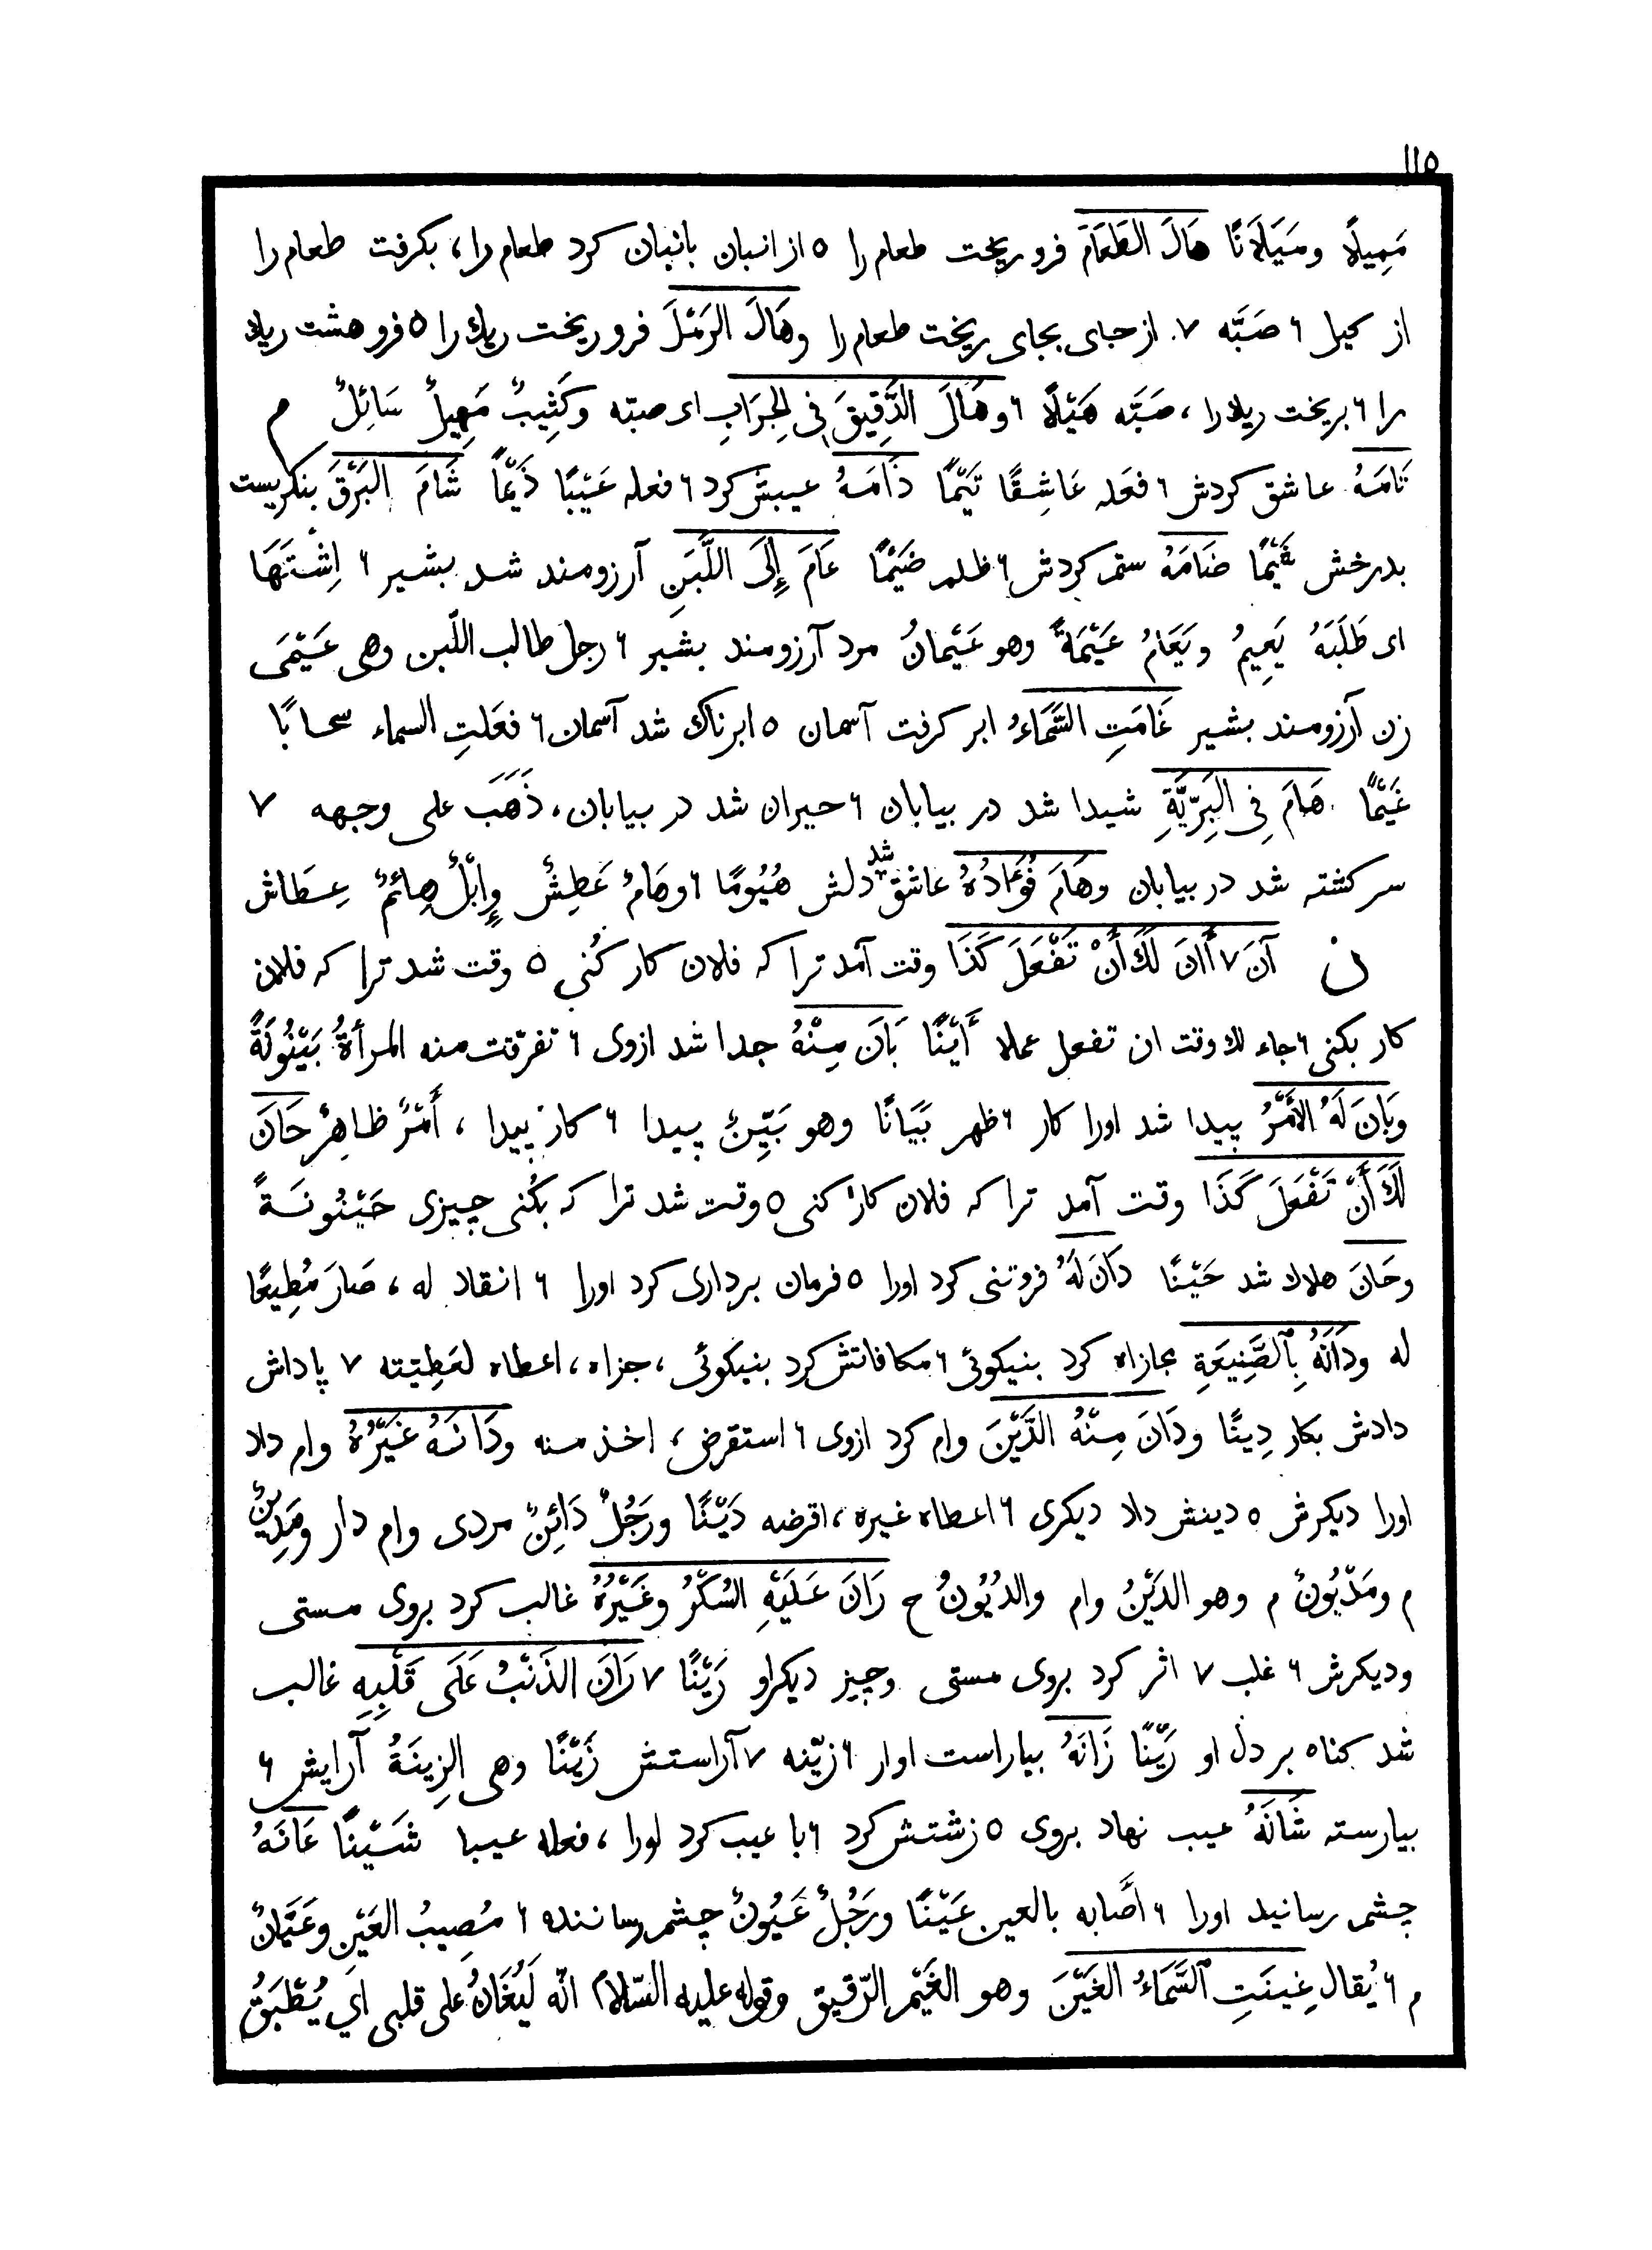 ١١٥
مَمِيلًا ومَيَلَانًا هَالَ الطَعَامَ فرو ریخت طعام را ٥ از انبان بانبان کرد طعام را، بکرفت طعام را
از کیل ٦ صَبَّه ٧ از جای بجای ریخت طعام را وهَالَ الرَمْلَ فرو ریخت ریك را ٥ فرو هشت ریك
را ٦ بریخت ریك را، صَبَّه هَيْلًا ٦ وهَالَ الدَّقِيقَ فِى الجِرَابِ ای صبّه وكَثِيبٌ مَهِيلٌ سَائِلٌ م
تَامَهُ عاشق کردش ٦ فعَله عَاشِقًا تَيْمًا ذَامَهُ عیبش کرد ٦ فعله عَيْبًا ذَيْمًا شَامَ البَرْقَ بنکریست
بدرخش شَيْمًا ضَامَهُ ستم کردش ٦ ظلم ضَيْمًا عَامَ إِلَى اللَّبَنِ آرزومند شد بشیر ٦ اِشْتَهَا
ای طَلَبَهُ يَعِيمُ ويَعَامُ عَيْمَةً وهو عَيْمانُ مرد آرزومند بشیر ٦ رجل طالب اللّبن وهی عَيْمَى
زن آرزومند بشیر غَامَتِ السَّمَاءُ ابر کرفت آسمان ٥ ابرناك شد آسمان ٦ فعَلتِ السماء سحابًا
غَيْمًا هَامَ فِى البَرِّيَّةِ شیدا شد در بیابان ٦ حیران شد در بیابان، ذَهَبَ علی وجهه ٧
سرکشته شد در بیابان وهَامَ فُؤَادُهُ عاشق شد دلش هُيُومًا ٦ وهَامُ عَطِشٌ وإِبْلٌ هِائمٌ عِطَاش
ن آنَ ٧ أَانَ لَكَ أَنْ تَفْعَلَ كَذَا وقت آمد ترا که فلان کار کُنی ٥ وقت شد ترا که فلان
کار بکنی ٦ جاء لك وقت ان تفعل عملا أَيْنًا بَانَ مِنْهُ جدا شد ازوی ٦ تفرّقت منه المرأةُ بَيْنُونَةً
وبَانَ لَهُ الأَمْرُ پیدا شد اورا کار ٦ ظهر بَيَانًا وهو بَيِّنٌ پیدا ٦ کار پیدا، أَمْرٌ ظاهِرٌ حَانَ
لَكَ أَنْ تَفْعَلَ كَذَا وقت آمد ترا که فلان کار کنی ٥ وقت شد ترا که بکُنی چیزی حَيْنُونَةً
وحَانَ هلاك شد حَيْنًا دَانَ لَهُ فروتنی کرد اورا ٥ فرمان برداری کرد اورا ٦ انقاد له، صَارَ مُطِيعًا
له ودَانَهُ بِالصَّنِيعَةِ مجازاه کرد بنیکوئی ٦ مکافاتش کرد بنیکوئی، جزاه، اعطاه لعَطِيّته ٧ پاداش
دادش بکار دِينًا ودَانَ مِنْهُ الدَّيْنَ وام کرد ازوی ٦ استقرض، اخذ منه ودَانَهُ غَيْرُهُ وام داد
اورا دیکرش ٥ دینش داد دیکری ٦ اعطاه غیره، اقرضه دَيْنًا ورَجُلٌ دَائِنٌ مردی وام دار ومَدِينٌ
م ومَدْيُونٌ م وهو الدَيْنُ وام والدُيُونُ ح رَانَ عَلَيْهِ السُكْرُ وغَيْرُهُ غالب کرد بروی مستی
ودیکرش ٦ غلب ٧ اثر کرد بروی مستی وچیز دیکراو رَيْنًا ٧ رَانَ الذَنْبُ عَلَى قَلْبِهِ غالب
شد کناه بر دل او رَيْنًا زَانَهُ بیاراست اوار ٦ زیّنه ٧ آراستش زَيْنًا وهی الزِينَةُ آرایش ٦
بیارسته شَانَهُ عیب نهاد بروی ٥ زشتش کرد ٦ با عیب کرد اورا، فعله عیبا شَيْنًا عَانَهُ
چشم رسانید اورا ٦ أصَابه بالعین عَيْنًا ورَجُلٌ عَيُونٌ چشم رساننده ٦ مُصِيبُ العَيْنِ وعَيَّانٌ
م ٦ يُقال غِينَتِ السَّمَاءُ الغَيْنَ وهو الغَيْم الرّقیق وقوله علیه السّلام انّه لَيُغَانُ علی قلبی اَي يُطْبَقُ